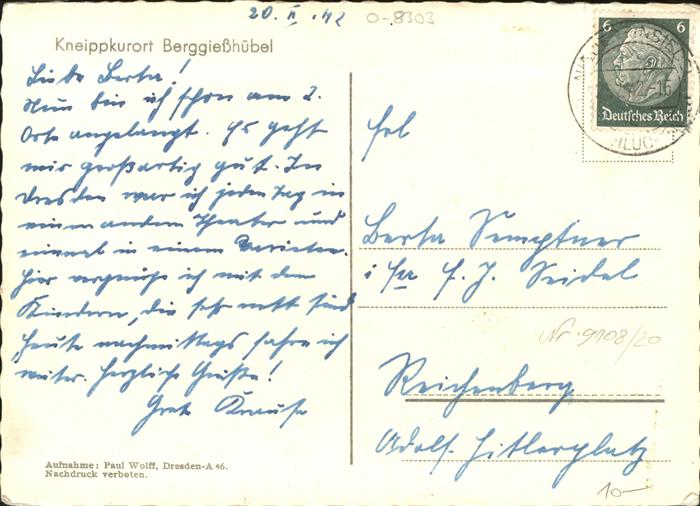 20. II. 42
0-8303
Kneippkurort Berggießhübel
Liebe Berta!
Nun bin ich schon am 2.
Orte angelangt. Es geht
mir großartig gut. In
Dresden war ich jeden Tag in
einem andern Theater und
einmal in einem Varietee.
Hier vergnüge ich mit den
Kindern, die sehr nett sind
Heute nachmittags fahre ich
weiter. Herzliche Grüße!
Grete Krause
Aufnahme: Paul Wolff, Dresden-A 46.
Nachdruck verboten.
6 6
Deutsches Reich
Frl
Berta Semptner
i. Fa F. J. Seidel
Nr. 9108/20
Reichenberg
Adolf-Hitlerplatz
10–